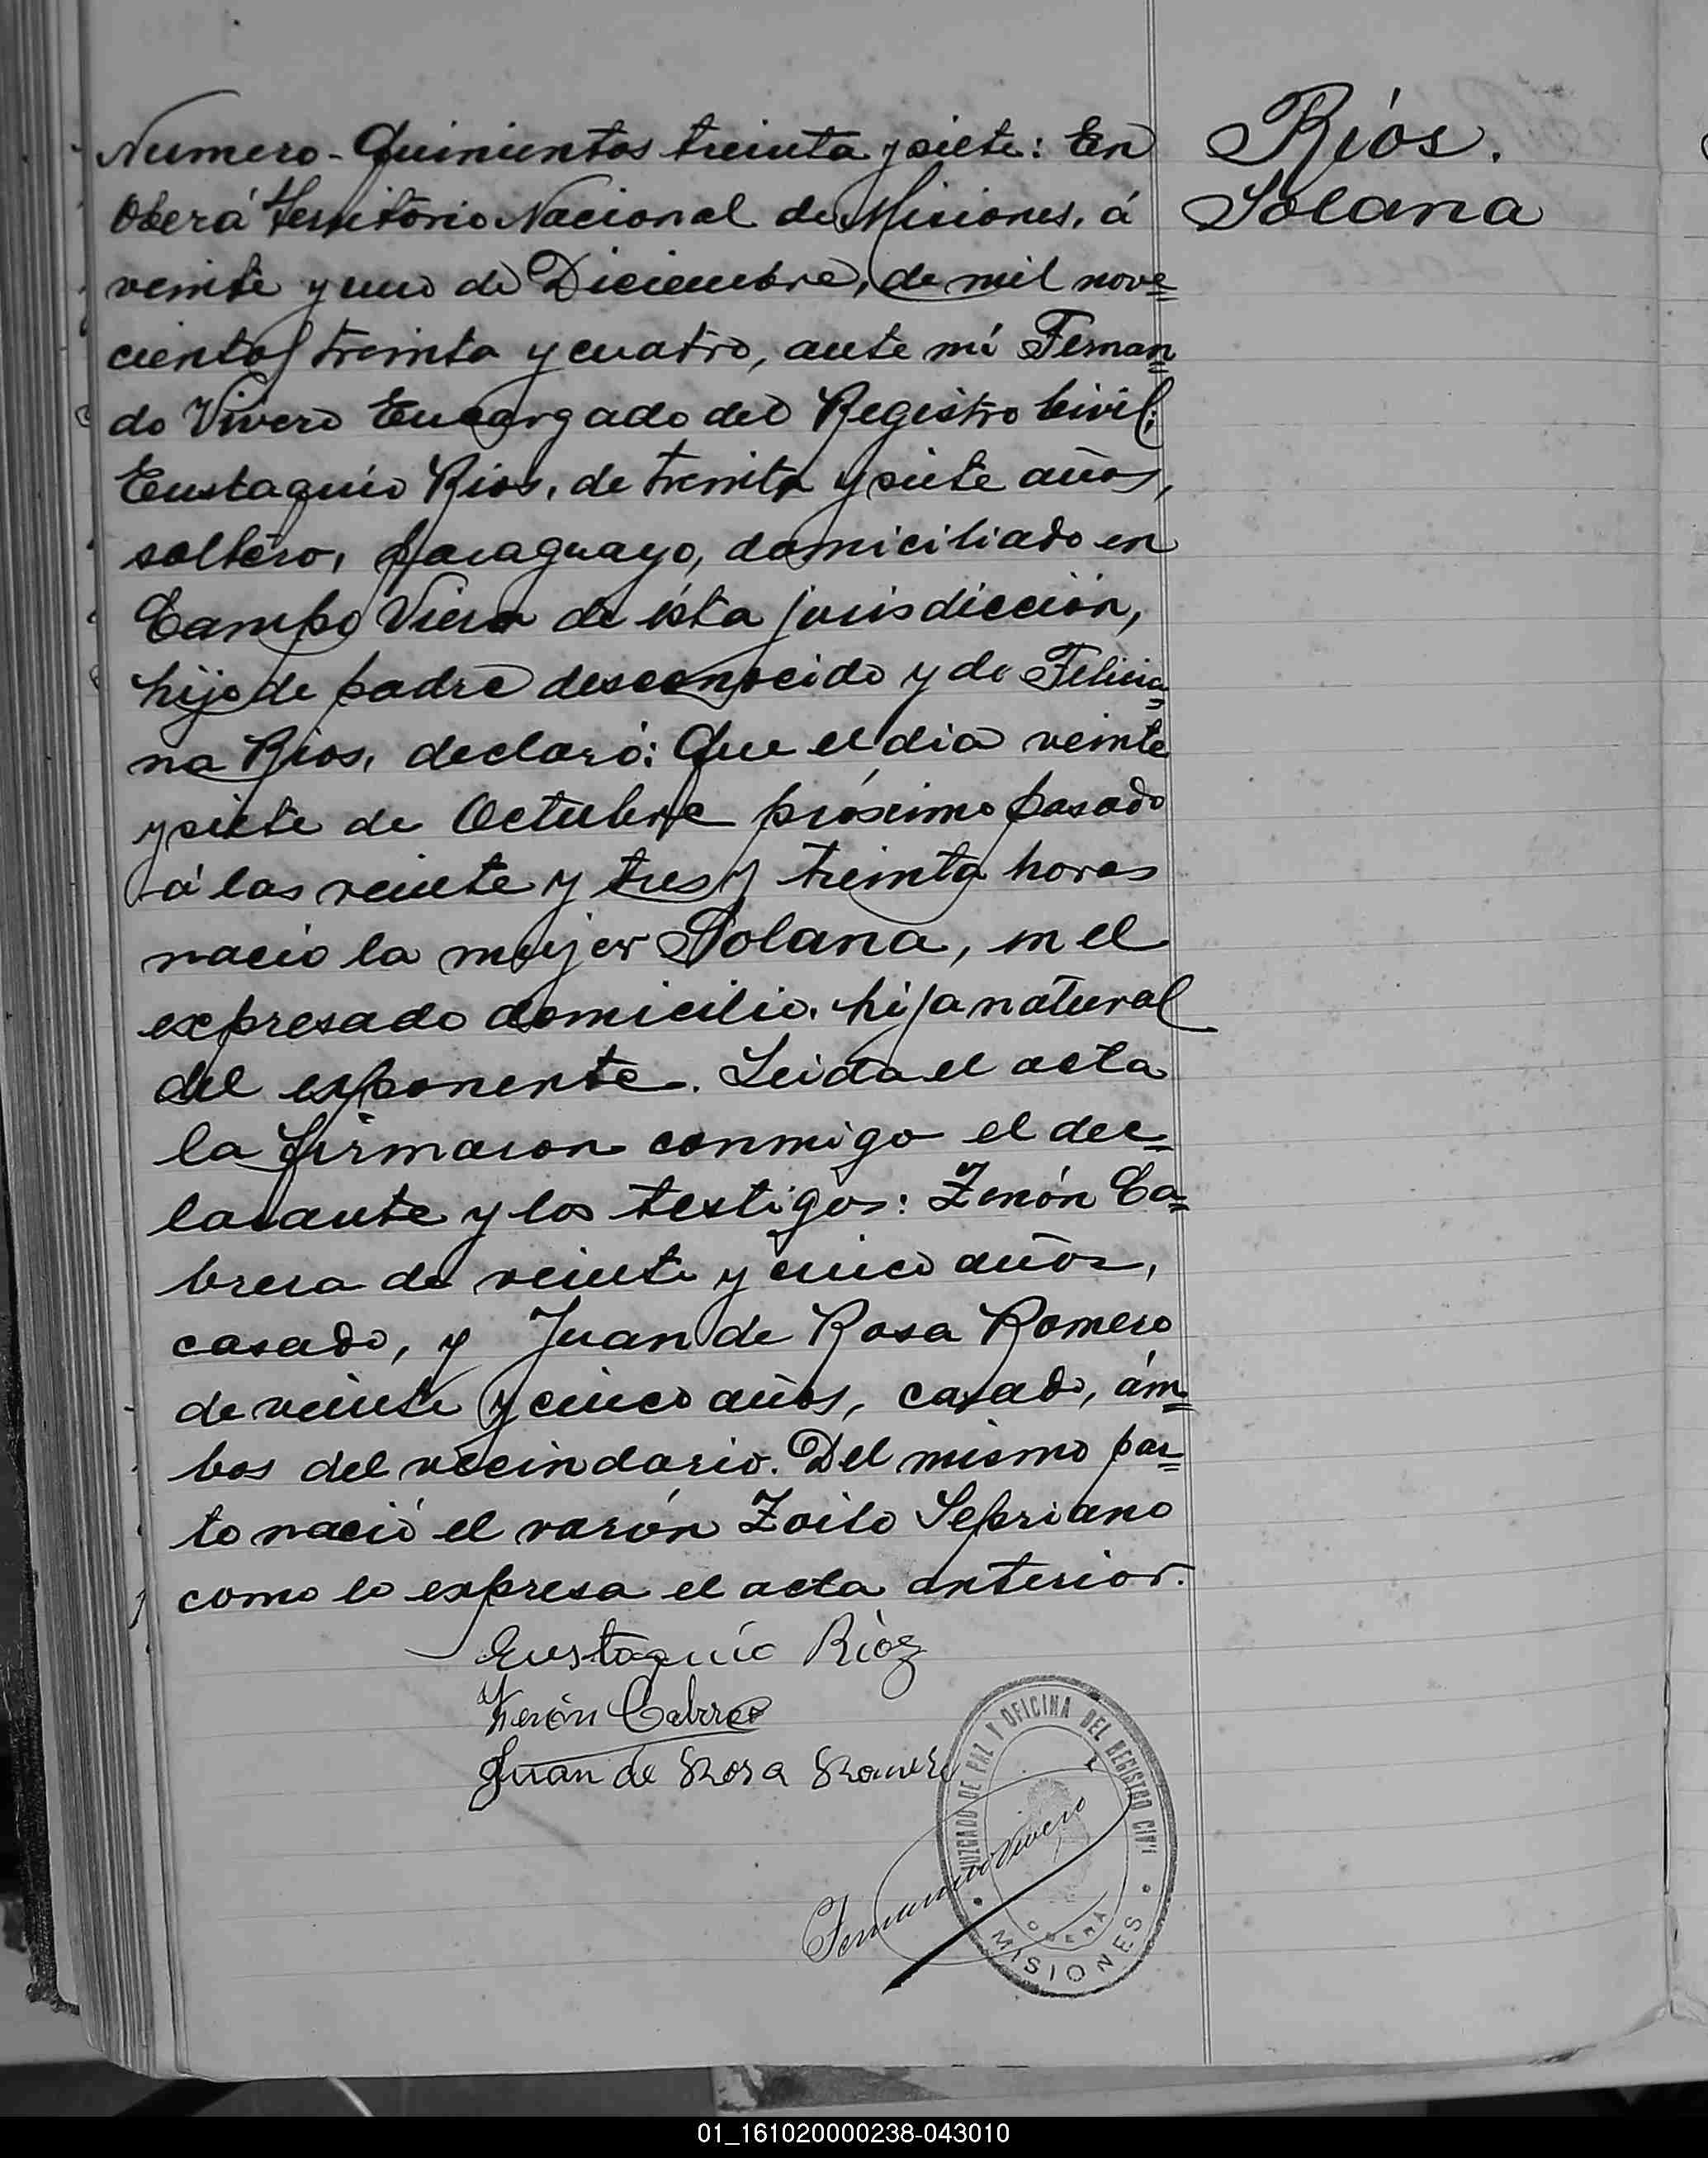 Numero - Quinientos treinta y siete: En
Oberá Territorio Nacional de Misiones, á
veinte y uno de Diciembre, de mil nove=
cientos treinta y cuatro, ante mí Fernan=
do Vivero Encargado del Registro Civil;
Eustaquio Rios, de treinta y siete años,
soltero, paraguayo, domiciliado en
Campo Viera de ésta jurisdicción,
hijo de padre desconocido y de Felicia=
na Rios, declaró: Que el dia veinte
y siete de Octubre próximo pasado
á las veinte y tres y treinta horas
nació la mujer Solana, en el
expresado domicilio. hija natural
del exponente. Leida el acta
la firmaron conmigo el dec=
larante y los testigos: Zenón Ca=
brera de veinte y cinco años,
casado, y Juan de Rosa Romero
de veinte y cinco años, casado, ám=
bos del vecindario. Del mismo par=
to nació el varón Zoilo Sepriano
como lo expresa el acta anterior.
Eustaquio Ríoz
Zenón Cabrera
Juan de Rosa Romero
Fernando Vivero
JUZGADO DE PAZ Y OFICINA DEL REGISTRO CIVIL
OBERÁ
MISIONES
Ríos.
Solana
01_161020000238-043010